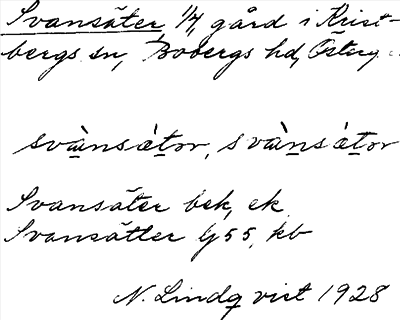 Svansäter, 1/4, gård i Krist-
bergs sn, Bobergs hd, Österg
svànsátor, svànsátor
Svansäter bek, ek
Svansätter G 55, kb
N. Lindqvist 1928